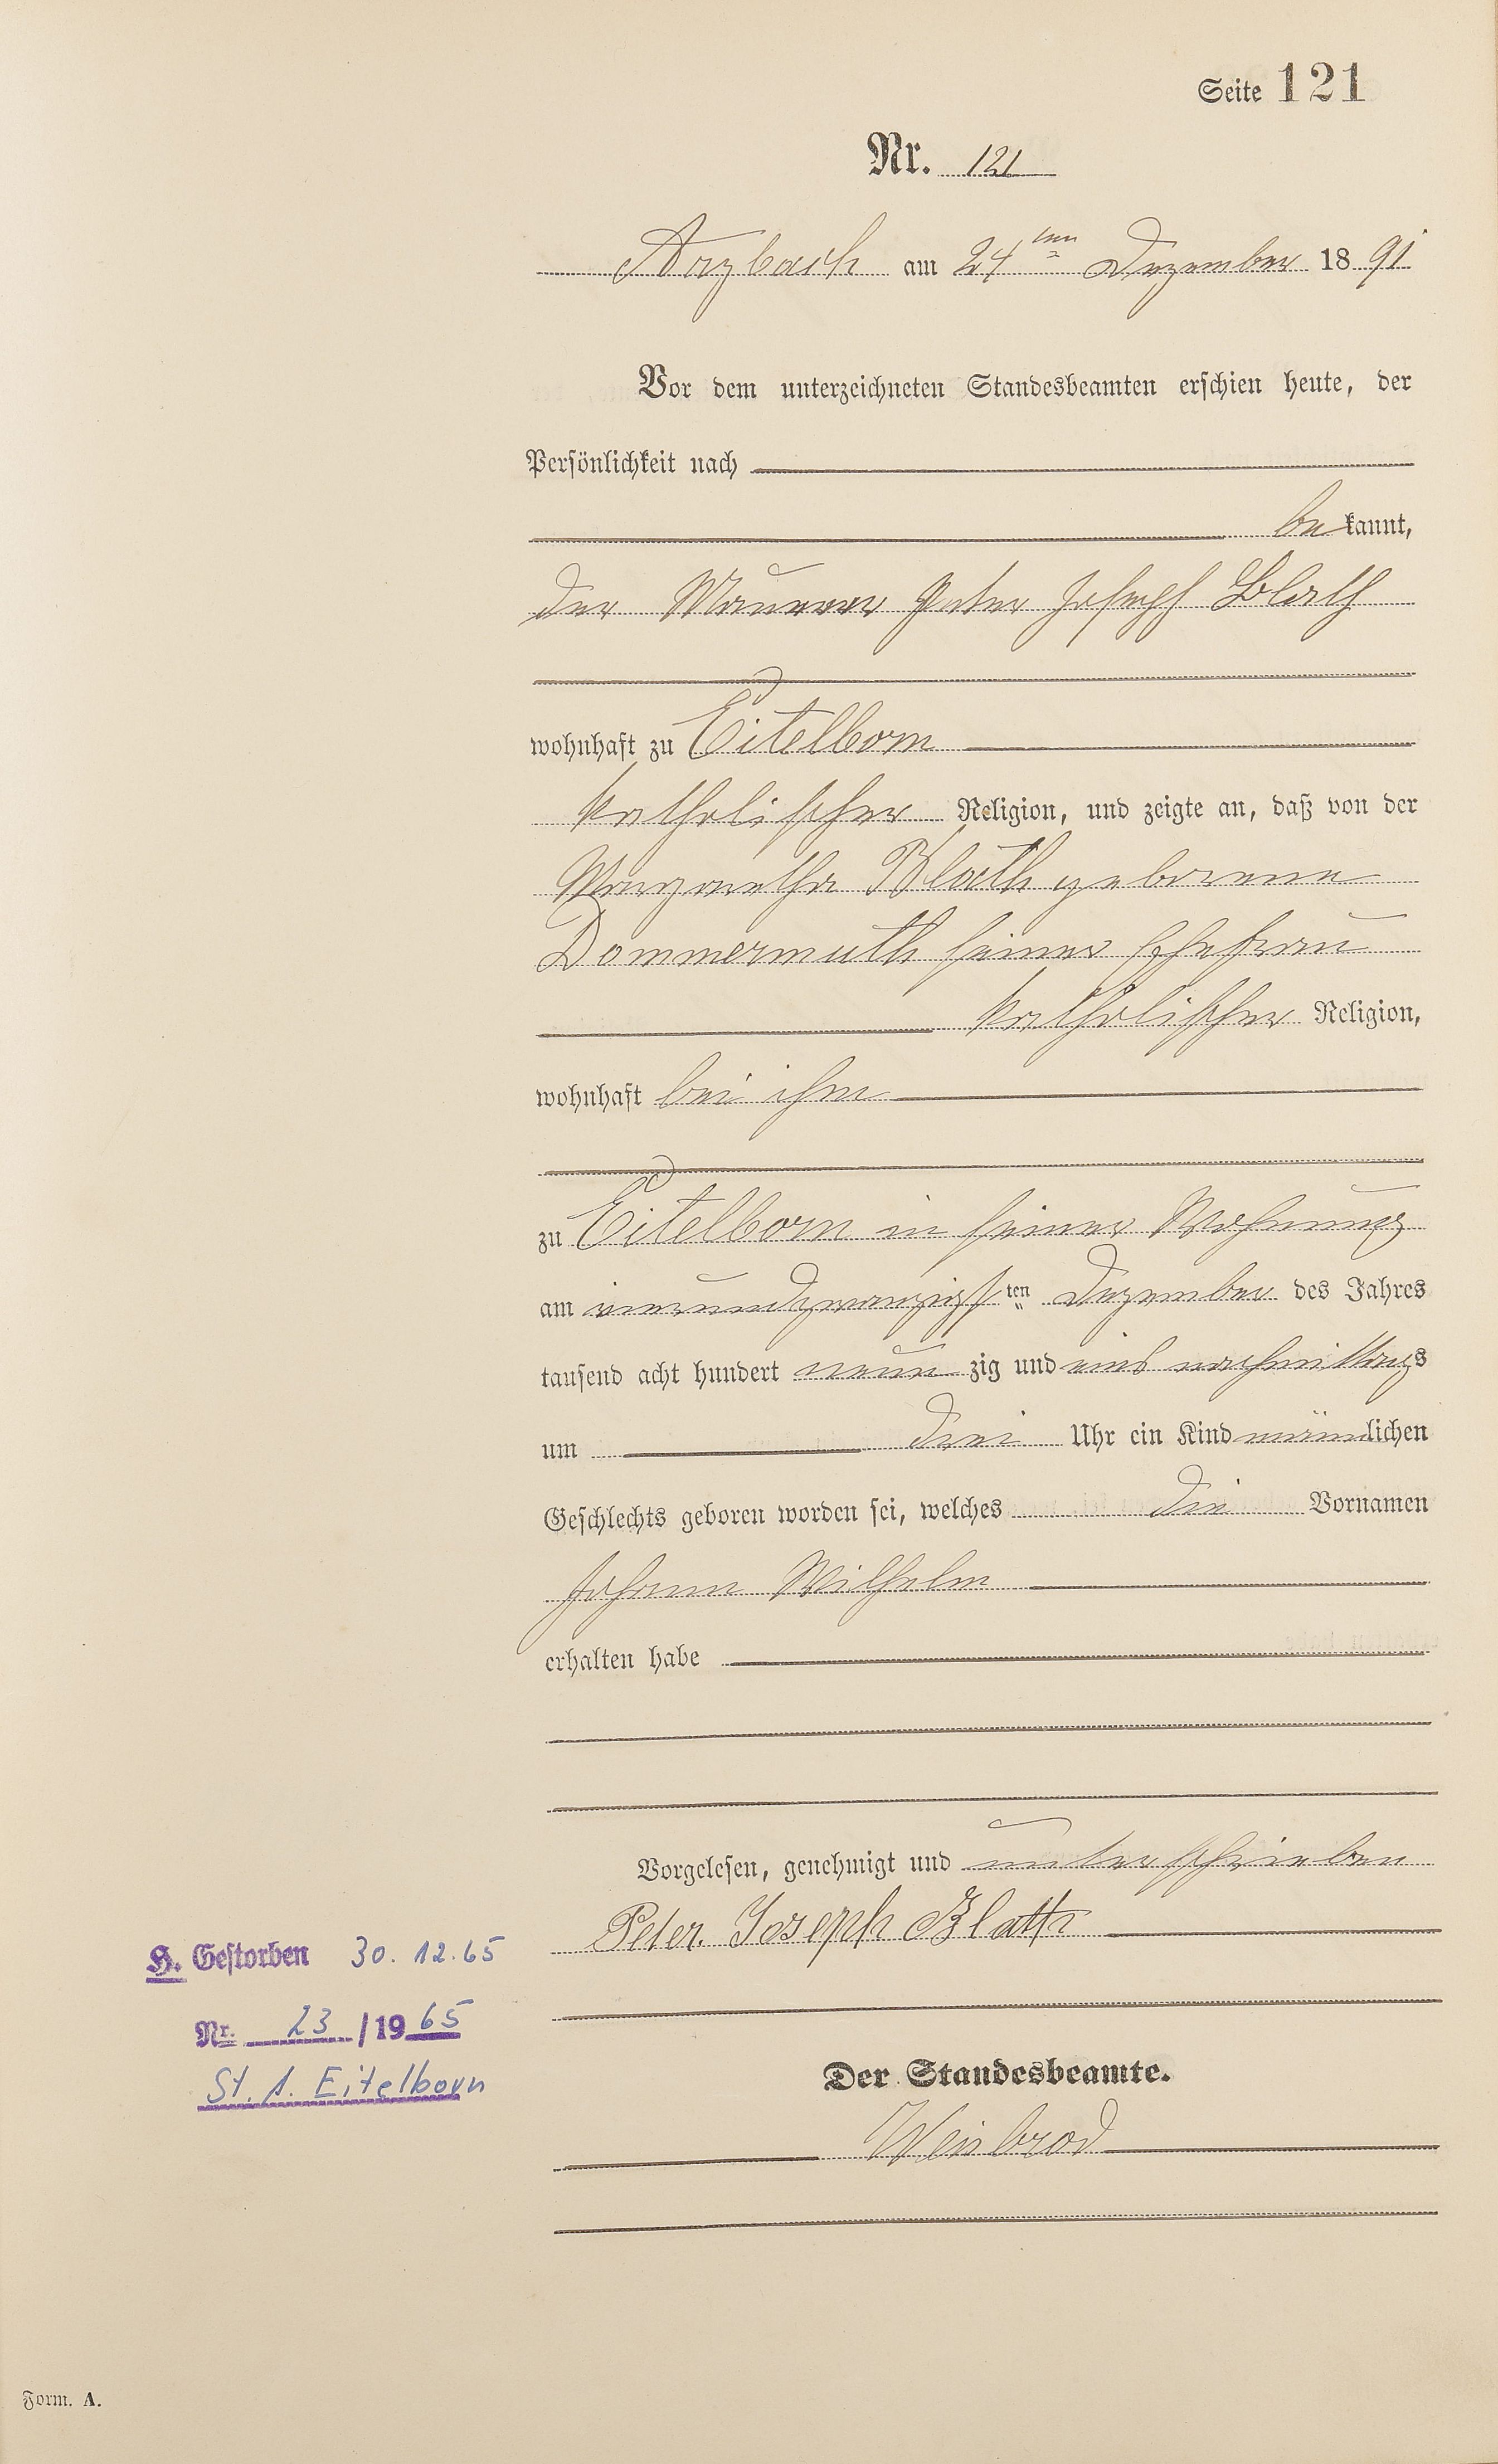 Seite 121
Nr. 121
Arzbach am 24ten Dezember 1891
Vor dem unterzeichneten Standesbeamten erschien heute, der
Persönlichkeit nach
bekannt,
der Maurer Peter Joseph Blath
wohnhaft zu Eitelborn
katholischer Religion, und zeigte an, daß von der
Margaretha Blath geborene
Dommermuth seiner Ehefrau
katholischer Religion,
wohnhaft bei ihm
zu Eitelborn in seiner Wohnung
am vierundzwanzigsten Dezember des Jahres
tausend acht hundert neunzig und eins nachmittags
um drei Uhr ein Kind männlichen
Geschlechts geboren worden sei, welches die Vornamen
Johann Wilhelm
erhalten habe
Vorgelesen, genehmigt und unterschrieben
Peter Joseph Blath
H. Gestorben 30.12.65
Nr. 23/1965
St. A. Eitelborn
Der Standesbeamte.
Weisbrod
Form. A.